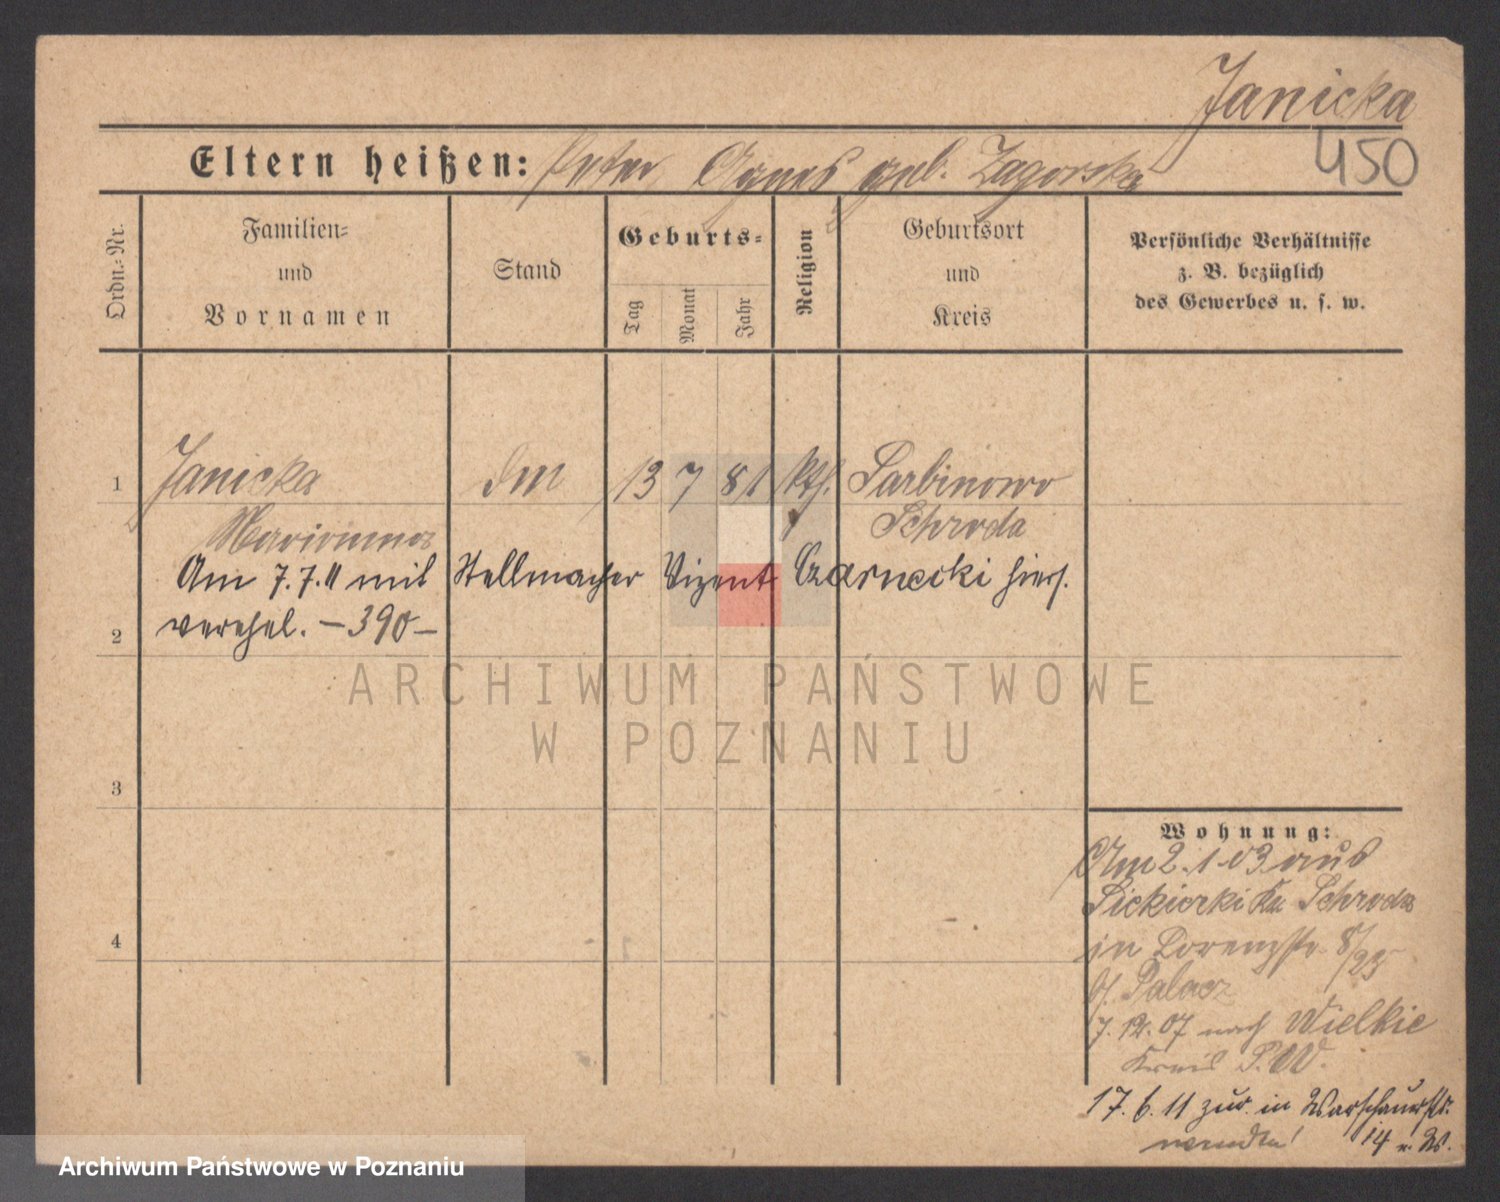 Janicka
450
Eltern heißen: Peter, Agnes geb. Zagorska
Ordn.-Nr.
Familien-
und
Vornamen
Stand
Geburts-
Tag
Monat
Jahr
Religion
Geburtsort
und
Kreis
Persönliche Verhältnisse
z. B. bezüglich
des Gewerbes u. s. w.
1 Janicka 13 7 81 kth. Sarbinowo
Marianna Schroda
Am 7.7.11 mit Stellmacher Vizent Czarnecki hier.
2 verehel. – 390 –
ARCHIWUM PAŃSTWOWE
W POZNANIU
3
Wohnung:
Am 2.1.03 aus
Siekierki Kr. Schroda
4
in Lorenzstr. 8/23
b/. Palacz
7.12.07 nach Wielkie
Kreis P.W.
17.6.11 zur. in Warschauerstr.
14
Archiwum Państwowe w Poznaniu